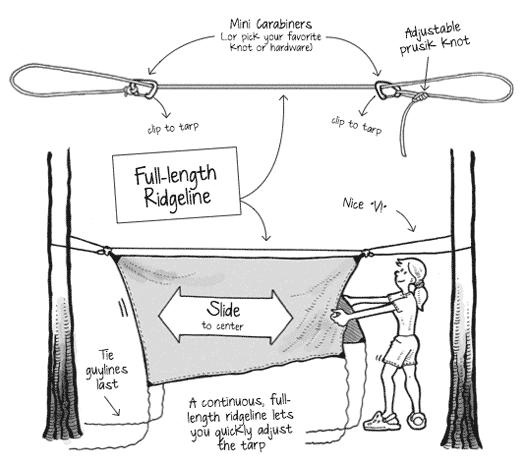 Mini Carabiners
(..or pick your favorite
knot or hardware)
Adjustable
prusik knot
clip to tarp
clip to tarp
Full-length
Ridgeline
Nice "V!"
Slide
to center
Tie
guylines
last
A continuous, full-
length ridgeline lets
you quickly adjust
the tarp